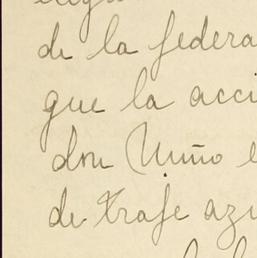 de la federa
que la acci
don Nuño e
de traje azu